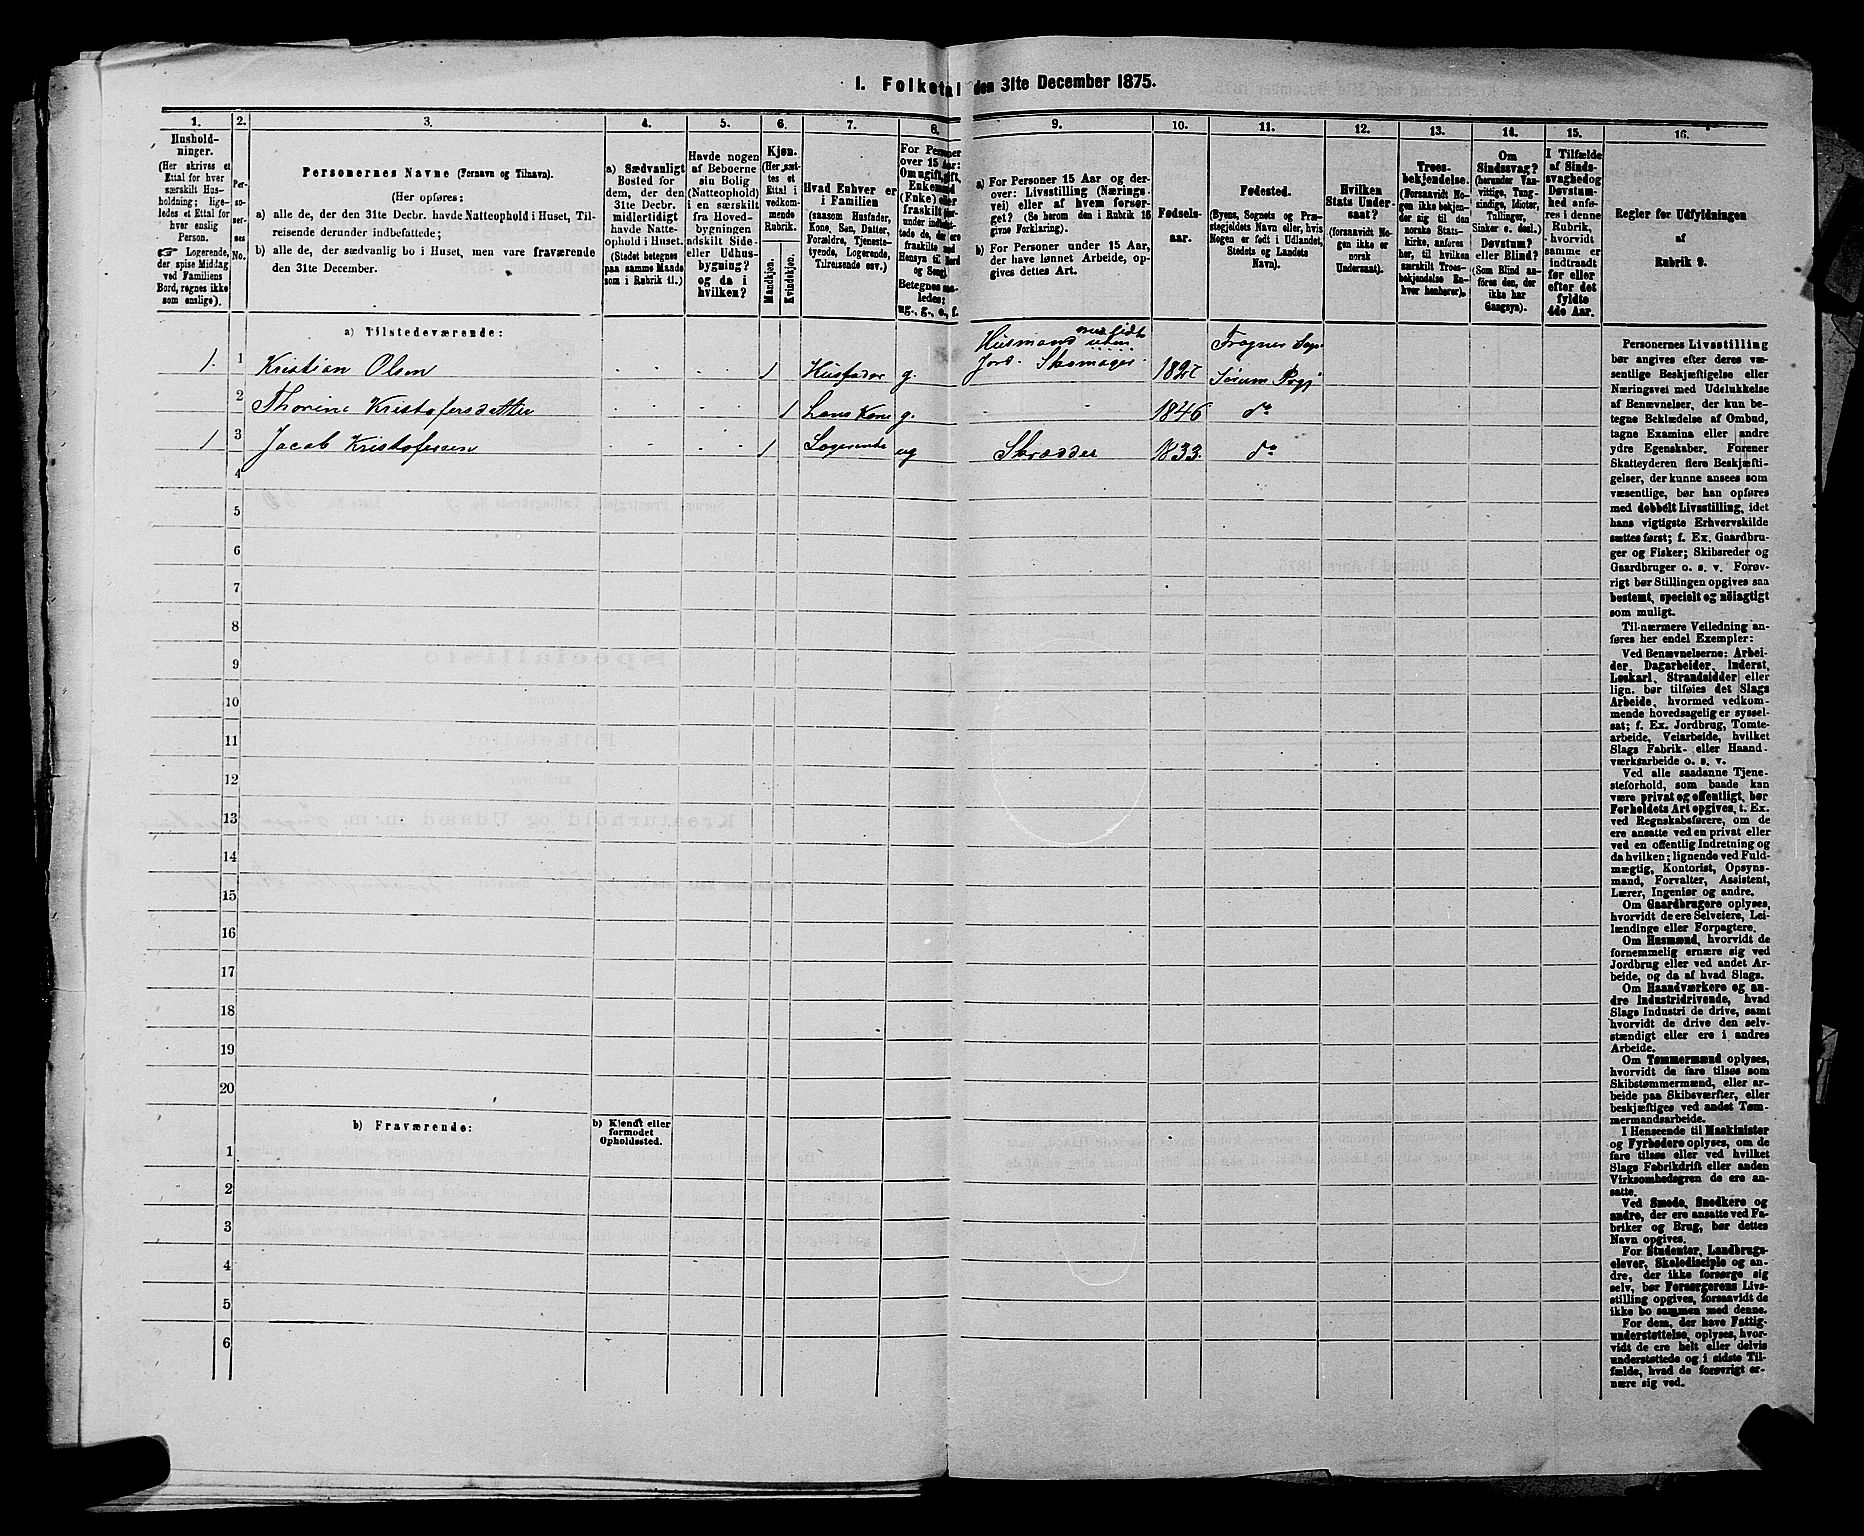 I. Folketal den 31te December 1875.
1.
2.
3.
4.
5.
6.
7.
8.
9.
10.
11.
12.
13.
14.
15.
16.
Husholdninger.
(Her skrives et
Ettal for hver
særskilt Husholdning; ligeledes et Ettal for
hver enslig
Person.
☞ Logerende,
der spise Middag
ved Familiens
Bord, regnes ikke
som enslige).
Personernes No.
Personernes Navne (Fornavn og Tilnavn).
(Her opføres:
a) alle de, der den 31te Decbr. havde Natteophold i Huset, Tilreisende derunder indbefattede;
b) alle de, der sædvanlig bo i Huset, men vare fraværende
den 31te December.
a) Sædvanligt
Bosted for
dem, der den
31te Decbr.
midlertidigt
havde Natteophold i Huset.
(Stedet betegnes
paa samme Maade
som i Rubrik 11.)
Havde nogen
af Beboerne
sin Bolig
(Natteophold)
i en særskilt
fra Hovedbygningen
adskilt Side-
eller Udhusbygning?
og da i
hvilken?
Kjøn.
(Her sættes et
Ettal i
vedkommende
Rubrik.
Mandkjøn.
Kvindekjøn.
Hvad Enhver er
i Familien
(saasom Husfader,
Kone, Søn, Datter,
Forældre, Tjenestetyende, Logerende,
Tilreisende osv.)
For Personer
over 15 Aar:
Om ugift, gift,
Enkemand
(Enke) eller
fraskilt
Betegnes saaledes:
ug., g., e., f.
a) For Personer 15 Aar og derover: Livsstilling (Næringsvei) eller af hvem forsørget? (Se herom den i Rubrik 16
givne Forklaring).
b) For Personer under 15 Aar,
der have lønnet Arbeide, opgives dettes Art.
Fødselsaar.
Fødested.
(Byens, Sognets og Præstegjeldets Navn eller, hvis
Nogen er født i Udlandet,
Stedets og Landets
Navn).
Hvilken
Stats Undersaat?
(forsaavidt Nogen ikke er
norsk
Undersaat).
Troesbekjendelse.
(Forsaavidt Nogen ikke bekjender sig til den
norske Statskirke, anføres
her, til hvilken
særskilt Troesbekjendelse Enhver henhører).
Om
Sindssvag?
(herunder Vanvittige, Tungsindige, Idioter,
Tullinger,
Sinker o. desl.)
Døvstum?
eller Blind?
(Som Blind anføres den, der
ikke har
Gangsyn).
I Tilfælde
af Sindssvaghed og
Døvstumhed anføres i denne
Rubrik,
hvorvidt
samme er
indtraadt
før eller
efter det
fyldte
4de Aar.
Regler for Udfyldningen
af
Rubrik 9.
a) Tilstedeværende:
1. 1 Kristian Olsen 1 Husfader g. Husmand uden Jord. Skomager. Frogner Sogn Sørum Prgj
2 Thorine Kristofersdatter 1 hans Kone g. 1846 do
1 3 Jacob Kristofersen 1 Logerende ug Skrædder 1833. do
4
5
6
7
8
9
10
11
12
13
14
15
16
17
18
19
20
b) Fraværende:
b) Kjendt eller
formodet
Opholdssted.
1
2
3
4
5
6
Personernes Livsstilling
bør angives efter deres væsentlige Beskjæftigelse eller
Næringsvei med Udelukkelse
af Benævnelser, der kun betegne Beklædelse af Ombud,
tagne Examina eller andre
ydre Egenskaber. Forener
Skatteyderen flere Beskjæftigelser, der kunne ansees som
væsentlige, bør han opføres
med dobbelt Livsstilling, idet
hans vigtigste Erhvervskilde
sættes først; f. Ex. Gaardbruger og Fisker; Skibsreder og
Gaardbruger o. s. v. Forøvrigt bør Stillingen opgives saa
bestemt, specielt og nöiagtigt
som muligt.
Til nærmere Veiledning anføres her endel Exempler:
Ved Benævnelserne: Arbeider, Dagarbeider, Inderst,
Løskarl, Strandsidder eller
lign. bør tilføies det Slags
Arbeide, hvormed vedkommende hovedsagelig er sysselsat; f. Ex. Jordbrug, Tomtearbeide, Veiarbeide, hvilket
Slags Fabrik- eller Haandværksarbeide o. s. v.
Ved alle saadanne Tjenesteforhold, som baade kan
være privat og offentligt, bør
Forholdets Art opgives, t. Ex.
ved Regnskabsførere, om de
ere ansatte ved en privat eller
ved en offentlig Indretning og
da hvilken; lignende ved Fuldmægtig, Kontorist, Opsynsmand, Forvalter, Assistent,
Lærer, Ingeniør og andre.
Om Gaardbrugere oplyses,
hvorvidt de ere Selveiere, Leilændinge eller Forpagtere.
Om Husmænd, hvorvidt de
fornemmelig ernære sig ved
Jordbrug eller ved andet Arbeide, og da af hvad Slags.
Om Haandværkere og andre Industridrivende, hvad
Slags Industri de drive, samt
hvorvidt de drive den selvstændigt eller ere i andres
Arbeide.
Om Tømmermænd oplyses,
hvorvidt de fare tilsøs som
Skibstømmermænd, eller arbeide paa Skibsværfter, eller
beskjæftiges ved andet Tømmermandsarbeide.
I Henseende til Maskinister
og Fyrbødere oplyses, om de
fare tilsøs eller ved hvilket
Slags Fabrikdrift eller anden
Virksomhedsgren de ere ansatte.
Ved Smede, Snedkere og
andre, der ere ansatte ved Fabriker og Brug, bør dettes
Navn opgives.
For Studenter, Landbrugselever, Skoledisciple og andre, der ikke forsørge sig
selv, bør Forsørgerens Livsstilling opgives, forsaavidt de
ikke bo sammen med denne.
For dem, der have Fattigunderstøttelse, oplyses, hvorvidt de ere helt eller delvis
understøttede og i sidste Tilfælde, hvad de forøvrigt ernære sig ved.